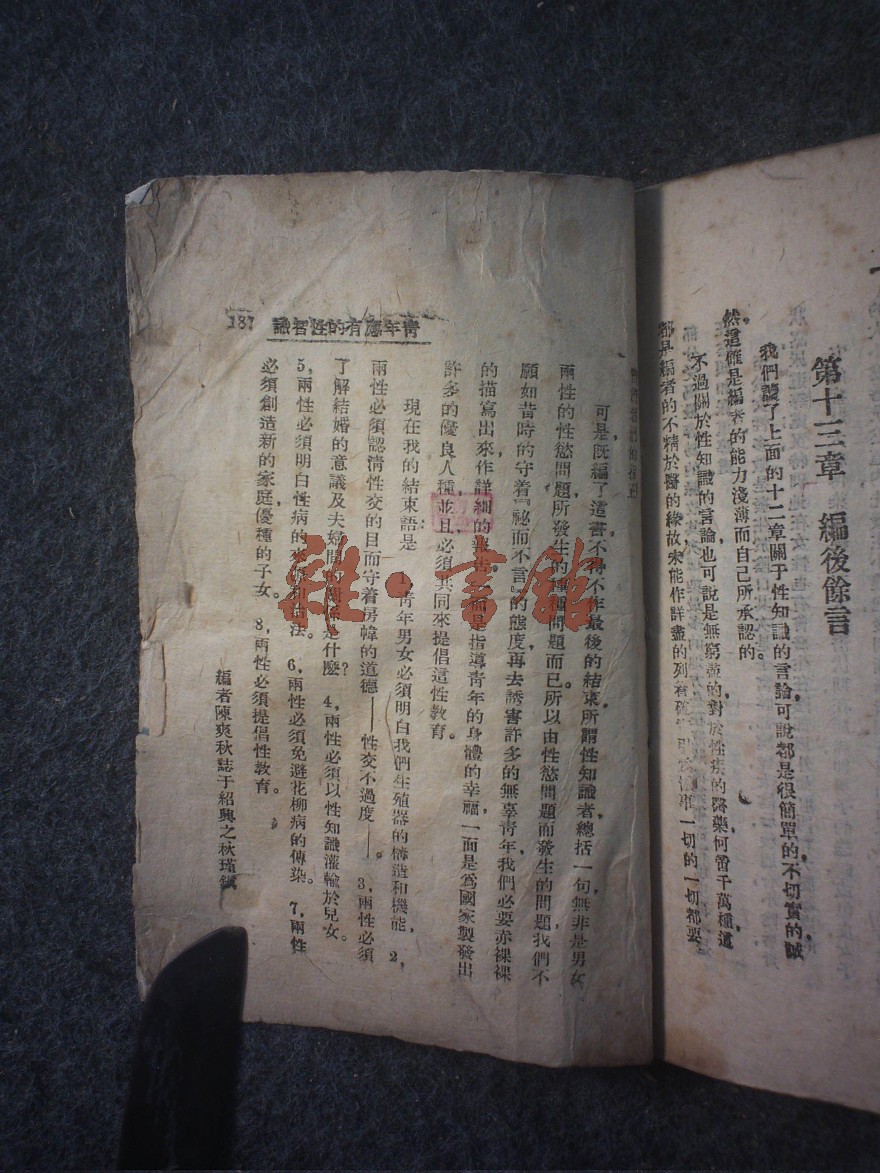 第十三章　編後餘言
我們讀了上面的十二章關于性知識的言論，可說都是很簡單的，不切實的，誠
然，這確是編者的能力淺薄而自己所承認的。
不過關於性知識的言論，也可說是無窮盡的，對於性疾的醫藥，何啻千萬種，這
都是編者的不精於醫的緣故，未能作詳盡的列着
一切的一切都要
可是，既編了這書，不得不作最後的結束，所謂性知識者，總括一句，無非是男女
兩性的性慾問題所發生的種種問題而已。所以由性慾問題而發生的問題，我們不
願如昔時的守着『祕而不言』的態度，再去誘害許多的無辜青年，我們必要赤裸裸
的描寫出來，作詳細的報告，一面是指導青年的身體的幸福，一面是爲國家製發出
許多的優良人種，並且必須共同來提倡這性教育。
現在我的結束語是　1，青年男女必須明白我們生殖器的構造和機能，　2，
兩性必須認清性交的目而守着房幃的道德——性交不過度——。　3，兩性必須
了解結婚的意議及夫婦間的關係是什麼？　4，兩性必須以性知識灌輸於兒女。
5，兩性必須明白性病的來源和治法。　6，兩性必須免避花柳病的傳染。　7，兩性
必須創造新的家庭，優種的子女。　8，兩性必須提倡性教育。
編者陳爽秋誌于紹興之秋瑾鎮
青年應有的性智識
187
雜·書館